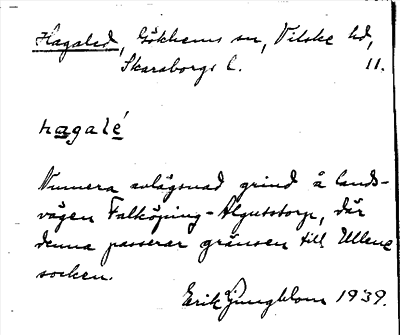 Hagaled, Gökhems sn, Vilske hd,
Skaraborgs l. 11.
hagalé
Numera avlägsnad grind å lands-
vägen Falköping-Algutstorp, där
denna passerar gränsen till Ullene
socken.
Erik Ljungblom 1939.